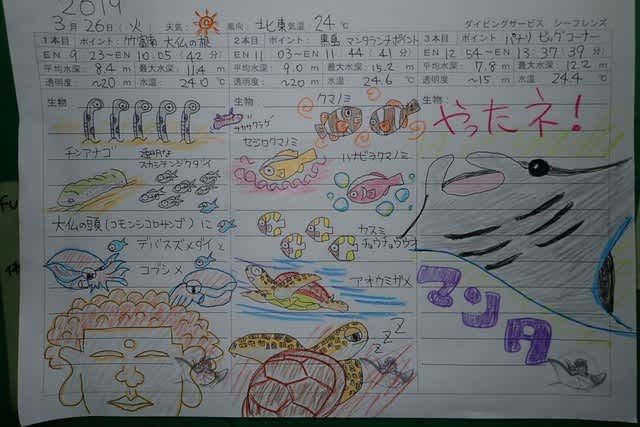 2019
3月26日(火) 天気: 風向: 北東 気温 24℃ ダイビングサービス シーフレンズ
1本目 ポイント: 竹富南 大仏の根
EN 9:23~EN 10:05(42分)
平均水深: 8.4m 最大水深: 11.4m
透明度: ~20m 水温 24.0℃
生物
チンアナゴ
透明な
スカシテンジクダイ
大仏の頭(コモンシコロサンゴ)に
デバスズメダイと
コブシメ
2本目 ポイント: 黒島 マンタランチポイント
EN 11:03~EN 11:44(41分)
平均水深: 9.0m 最大水深: 15.2m
透明度: ~20m 水温 24.6℃
生物:
クマノミ
セジロクマノミ
ハナビラクマノミ
カスミ
チョウチョウウオ
アオウミガメ
ZZZ
3本目 ポイント: パナリ ビッグコーナー
EN 12:54~EN 13:37(39分)
平均水深: 7.8m 最大水深: 12.2m
透明度: ~15m 水温 24.4℃
生物:
やったネ!
マンタ